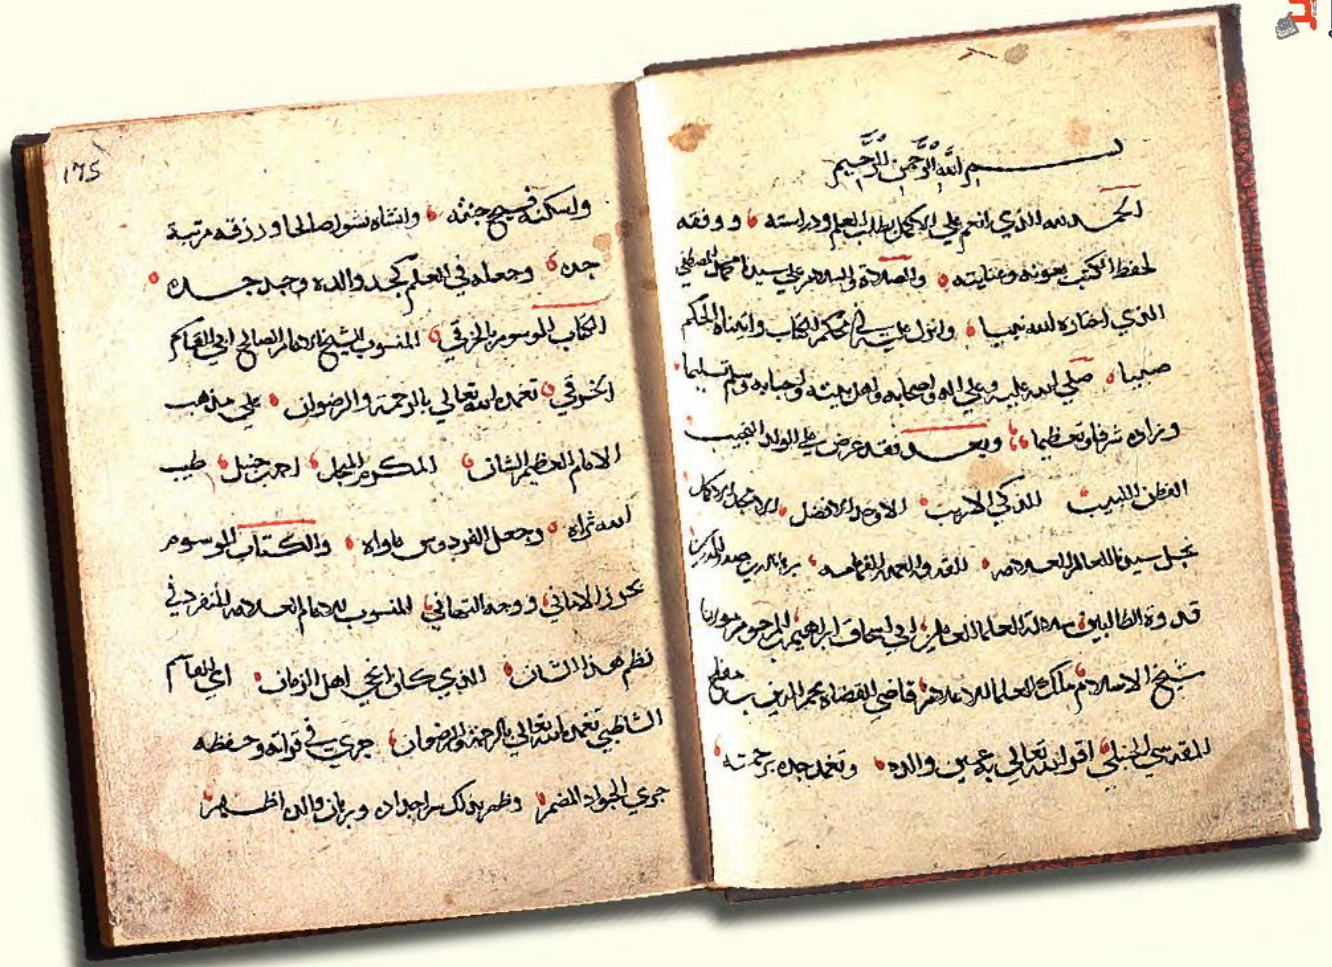 بسم الله الرحمن الرحيم
الحمد لله الذي انعم علي الاكمل بطلب العلم ودراسته ووفقه
لحفظ الكتب بعونه وعنايته والصلاة والسلام علي سيدنا محمد المصطفي
الذي اختاره الله نجيبا وانزل عليه في محكم الكتاب واتيناه الحكم
صبيبا صلي الله عليه وعلي اله واصحابه واهل بيته واحبابه وسلم تسليما
وزاده شرفا وتعظيما وبعد فقد عرض علي الولد النجيب
الفطن اللبيب الذكي الاريب الاوحد الافضل الامجد الاكمل
نجل سيدنا العالم العلامه القدوه العمده الفهامه برهان الدين صدر المدرسين
قدوة الطالبين سلالة العلما العاملين ابي اسحاق ابراهيم بن المرحوم مولانا
شيخ الاسلام ملك العلما الاعلام قاضي القضاه نجم الدين بن مفلح
المقدسي الحنبلي اقر الله تعالي به عين والده وتغمد جده برحمته
١٢٥
واسكنه فسيح جنته وانشاه نشوا صالحا ورزقه مرتبة
جده وجعله في العلم كجد والده وجد جده
الكتاب الموسوم بالخرقي المنسوب للشيخ الامام الصالح ابي القاسم
الخرقي تغمده الله تعالي بالرحمة والرضوان علي مذهب
الامام العظيم الشان المكرم المبجل احمد بن حنبل طيب
الله ثراه وجعل الفردوس ماواه والكتاب الموسوم
بحرز الاماني ووجه التهاني المنسوب للامام العلامه المنفرد في
نظم هذا الشان الذي كان انحي اهل الزمان ابي القاسم
الشاطبي تغمده الله تعالي بالرحمة والرضوان جري في قراته وحفظه
جري الجواد المضمر وظهر بذلك سر اجداده وبرهان والده اظهر